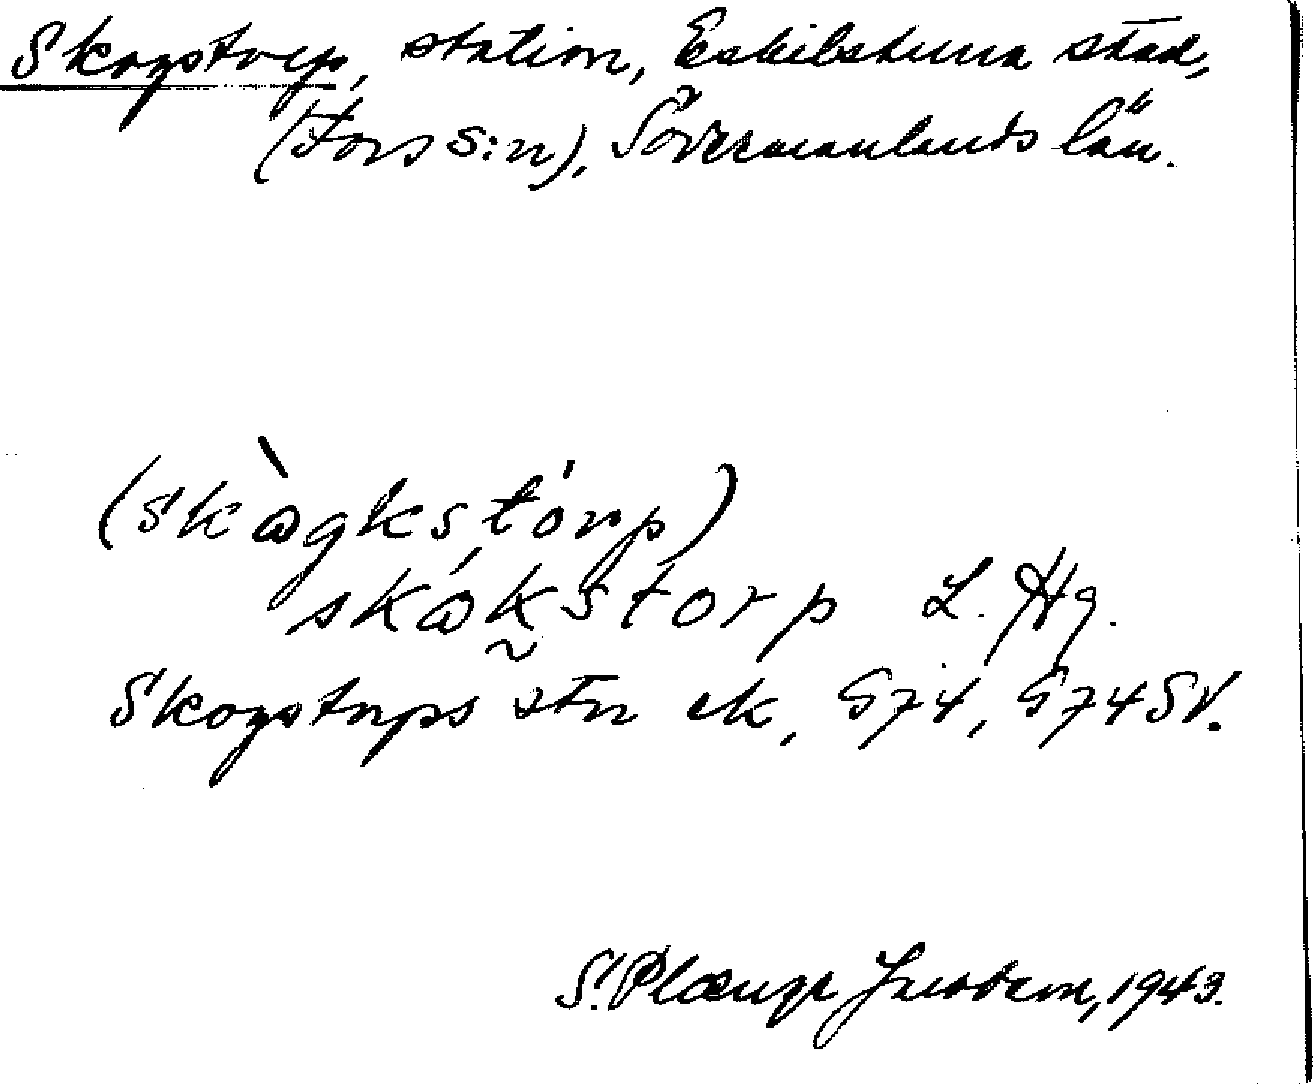 Skogstorp, station, Eskilstuna stad,
(Fors s:n), Södermanlands län.
(skògks,tórp)
skókstorp L. Hg.
Skogstorps stn ek, G74, G74SV.
S. 1943.